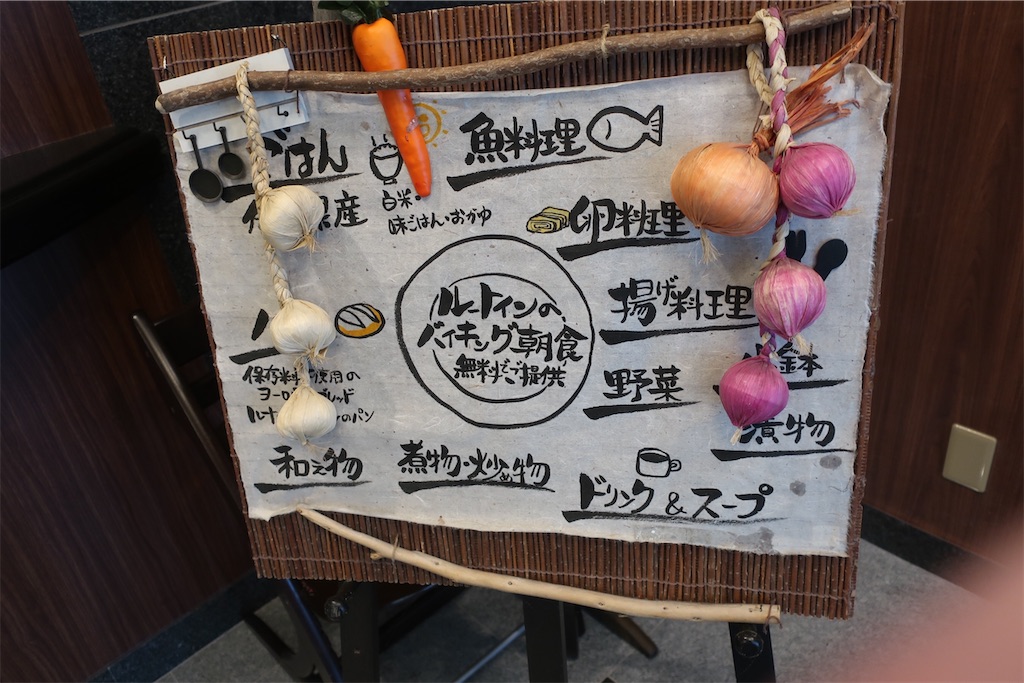 ごはん
産
白米・
味ごはん・おかゆ
魚料理
卵料理
揚げ料理
野菜
鉢
漬物
ルートインの
バイキング朝食
無料でご提供
保存料 使用の
ヨーロ ブレッド
ルート のパン
和え物
煮物・炒め物
ドリンク&スープ